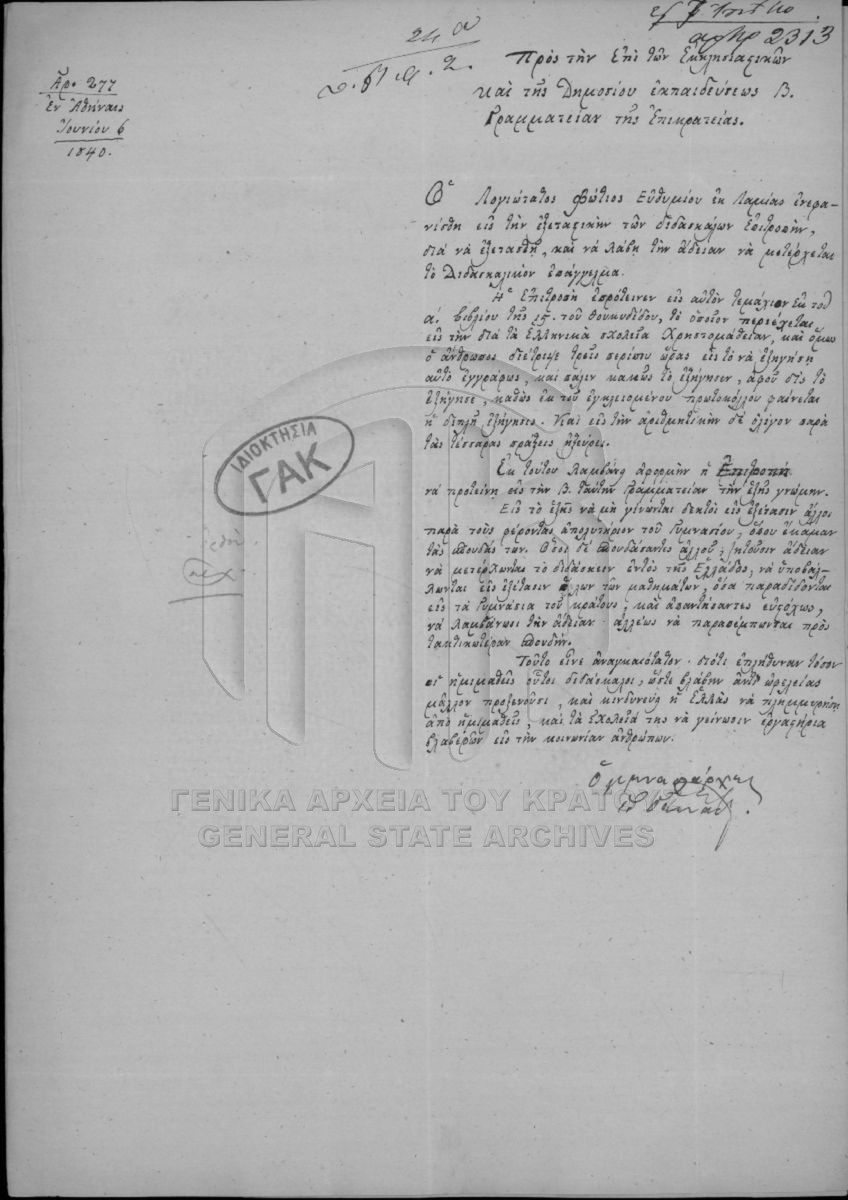 αριθ 2313
24 α
Ἀρ. 277
Ἐν Ἀθήναις
Ἰουνίου 6
1840.
Πρὸς τὴν ἐπὶ τῶν Ἐκκλησιαστικῶν
καὶ τῆς Δημοσίου ἐκπαιδεύσεως Β.
Γραμματείαν τῆς Ἐπικρατείας.
Ὁ Λογιώτατος Φώτιος Εὐθυμίου ἐκ Λαμίας ἐνεφα-
νίσθη εἰς τὴν ἐξεταστικὴν τῶν διδασκάλων Ἐπιτροπὴν,
διὰ νὰ ἐξετασθῇ, καὶ νὰ λάβῃ τὴν ἄδειαν νὰ μετέρχεται
τὸ Διδασκαλικὸν ἐπάγγελμα.
Ἡ Ἐπιτροπὴ ἐπρότεινεν εἰς αὐτὸν τεμάχιον ἐκ τοῦ
α. βιβλίου τῆς ἱς. τοῦ Θουκυδίδου, τὸ ὁποῖον περιέχεται
εἰς τὴν διὰ τὰ Ἑλληνικὰ σχολεῖα Χρηστομάθειαν, καὶ ὅμως
ὁ ἄνθρωπος διέτριψε τρεῖς περίπου ὥρας εἰς τὸ νὰ ἐξηγήσῃ
αὐτὸ ἐγγράφως, καὶ πάλιν κακῶς τὸ ἐξήγησεν, ἀφοῦ δὶς τὸ
ἐξήγησε, καθὼς ἐκ τοῦ ἐγκλεισμένου πρωτοκόλλου φαίνεται
ἡ διπλῆ ἐξήγησις. Καὶ εἰς τὴν ἀριθμητικὴν δὲ ὀλίγον παρὰ
τὰς τέσσαρας πράξεις ἠξεύρει.
Ἐκ τούτου λαμβάνει ἀφορμὴν ἡ Ἐπιτροπὴ
νὰ προτείνῃ εἰς τὴν Β. ταύτην Γραμματείαν τὴν ἑξῆς γνώμην.
Εἰς τὸ ἑξῆς νὰ μὴ γίνωνται δεκτοὶ εἰς ἐξέτασιν ἄλλοι
παρὰ τοὺς φέροντας ἀπολυτήριον τοῦ Γυμνασίου, ὅπου ἔκαμαν
τὰς σπουδάς των. Ὅσοι δὲ σπουδάσαντες ἀλλοῦ, ζητοῦσιν ἄδειαν
νὰ μετέρχωνται τὸ διδάσκειν ἐντὸς τῆς Ἑλλάδος, νὰ ὑποβάλ-
λωνται εἰς ἐξέτασιν ὅλων τῶν μαθημάτων, ὅσα παραδίδονται
εἰς τὰ Γυμνάσια τοῦ κράτους, καὶ ἀπαντήσαντες εὐστόχως,
νὰ λαμβάνωσι τὴν ἄδειαν· ἄλλως νὰ παραπέμπωνται πρὸς
τακτικωτέραν σπουδήν.
Τοῦτο εἶνε ἀναγκαιότατον· διότι ἐπληθύναν τόσον
οἱ ἡμιμαθεῖς οὗτοι διδάσκαλοι, ὥστε βλάβην ἀντ' ὠφελείας
μᾶλλον προξενοῦσι, καὶ κινδυνεύει ἡ Ἑλλὰς νὰ πλημμυρήσῃ
ἀπὸ ἡμιμαθεῖς, καὶ τὰ Σχολεῖά της νὰ γείνωσιν ἐργαστήρια
βλαβερῶν εἰς τὴν κοινωνίαν ἀνθρώπων.
Ὁ γυμνασιάρχης
Γ. Γεννάδ
ΙΔΙΟΚΤΗΣΙΑ
ΓΑΚ
ΓΕΝΙΚΑ ΑΡΧΕΙΑ ΤΟΥ ΚΡΑΤΟΥΣ
GENERAL STATE ARCHIVES